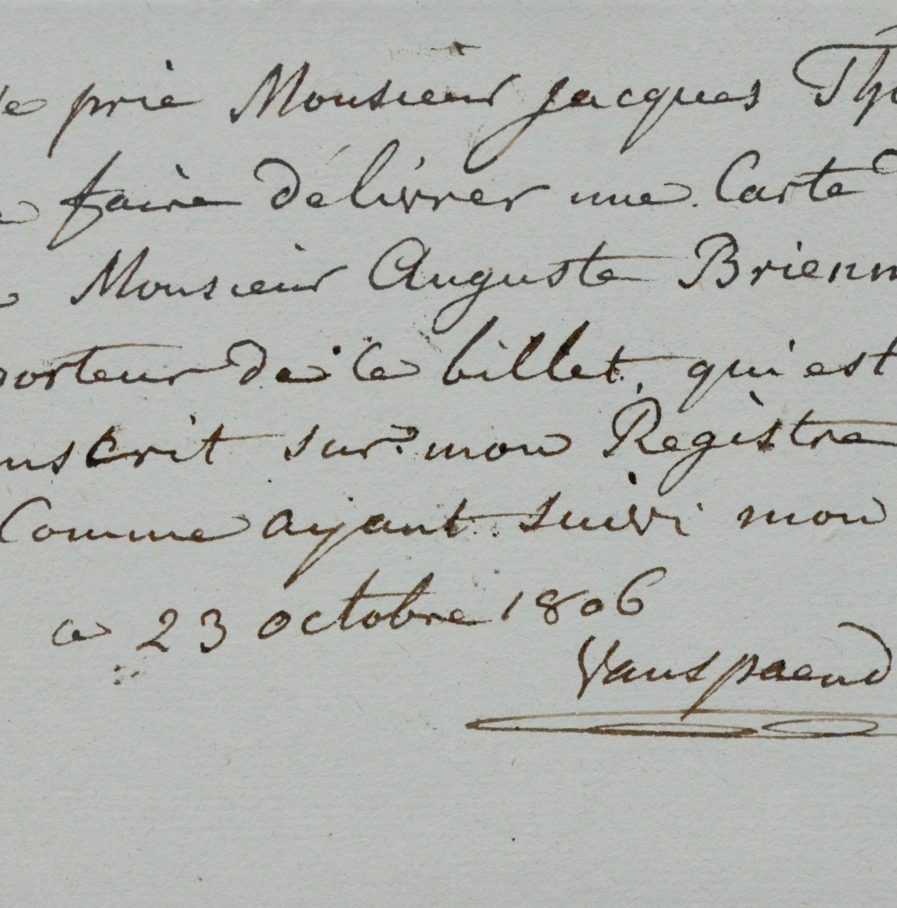 Je prie Monsieur Jacques Th
faire délivrer une Carte
Monsieur Auguste Brienn
porteur de ce billet, qui est
inscrit sur mon Registre
Comme ayant suivi mon
a 23 octobre 1806
Vanspaend